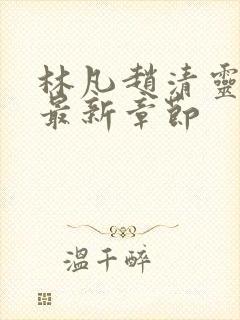 林凡趙清靈
最新章節
溫千醉